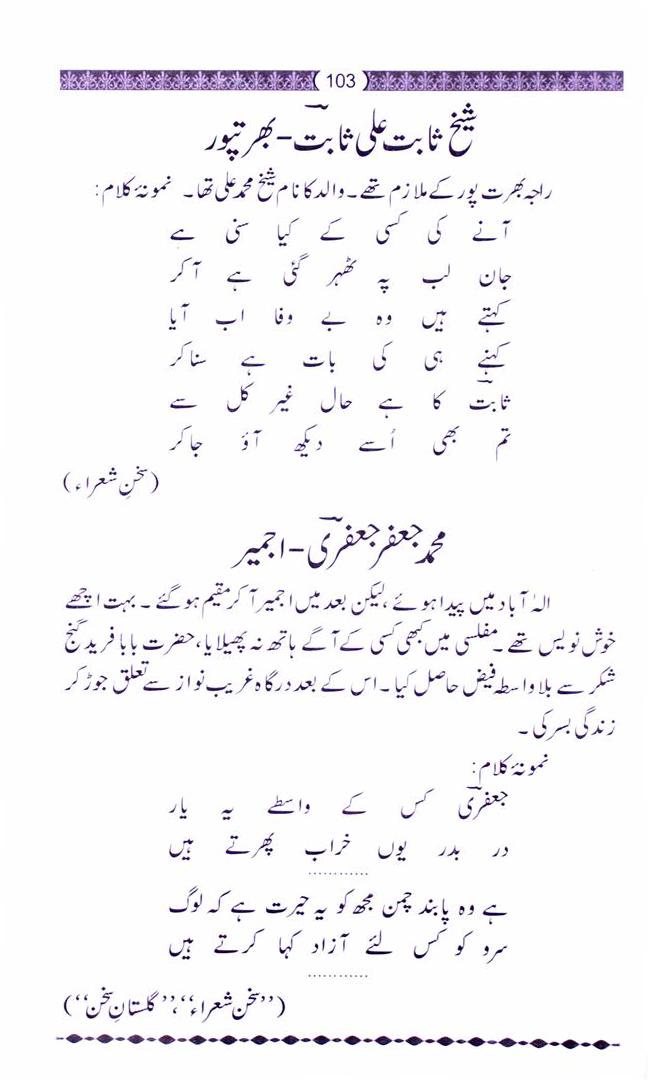 103
شیخ ثابت علی ثابتؔ - بھرتپور
راجہ بھرت پور کے ملازم تھے۔ والد کا نام شیخ محمد علی تھا۔ نمونۂ کلام:
آنے کی کسی کے کیا سنی ہے
جان لب پہ ٹھہر گئی ہے آ کر
کہتے ہیں وہ بے وفا اب آیا
کہنے ہی کی بات ہے سنا کر
ثابتؔ کا ہے حال غیر کل سے
تم بھی اُسے دیکھ آؤ جا کر
(سخنِ شعراء)
محمد جعفر جعفریؔ - اجمیر
الہٰ آباد میں پیدا ہوئے، لیکن بعد میں اجمیر آ کر مقیم ہو گئے۔ بہت اچھے
خوش نویس تھے۔ مفلسی میں کبھی کسی کے آگے ہاتھ نہ پھیلایا، حضرت بابا فرید گنج
شکر سے بلا واسطہ فیض حاصل کیا۔ اس کے بعد درگاہ غریب نواز سے تعلق جوڑ کر
زندگی بسر کی۔
نمونۂ کلام:
جعفریؔ کس کے واسطے یہ یار
در بدر یوں خراب پھرتے ہیں
............
ہے وہ پابند چمن مجھ کو یہ حیرت ہے کہ لوگ
سرو کو کس لئے آزاد کہا کرتے ہیں
............
(’’سخن شعراء‘‘، ’’گلستانِ سخن‘‘)